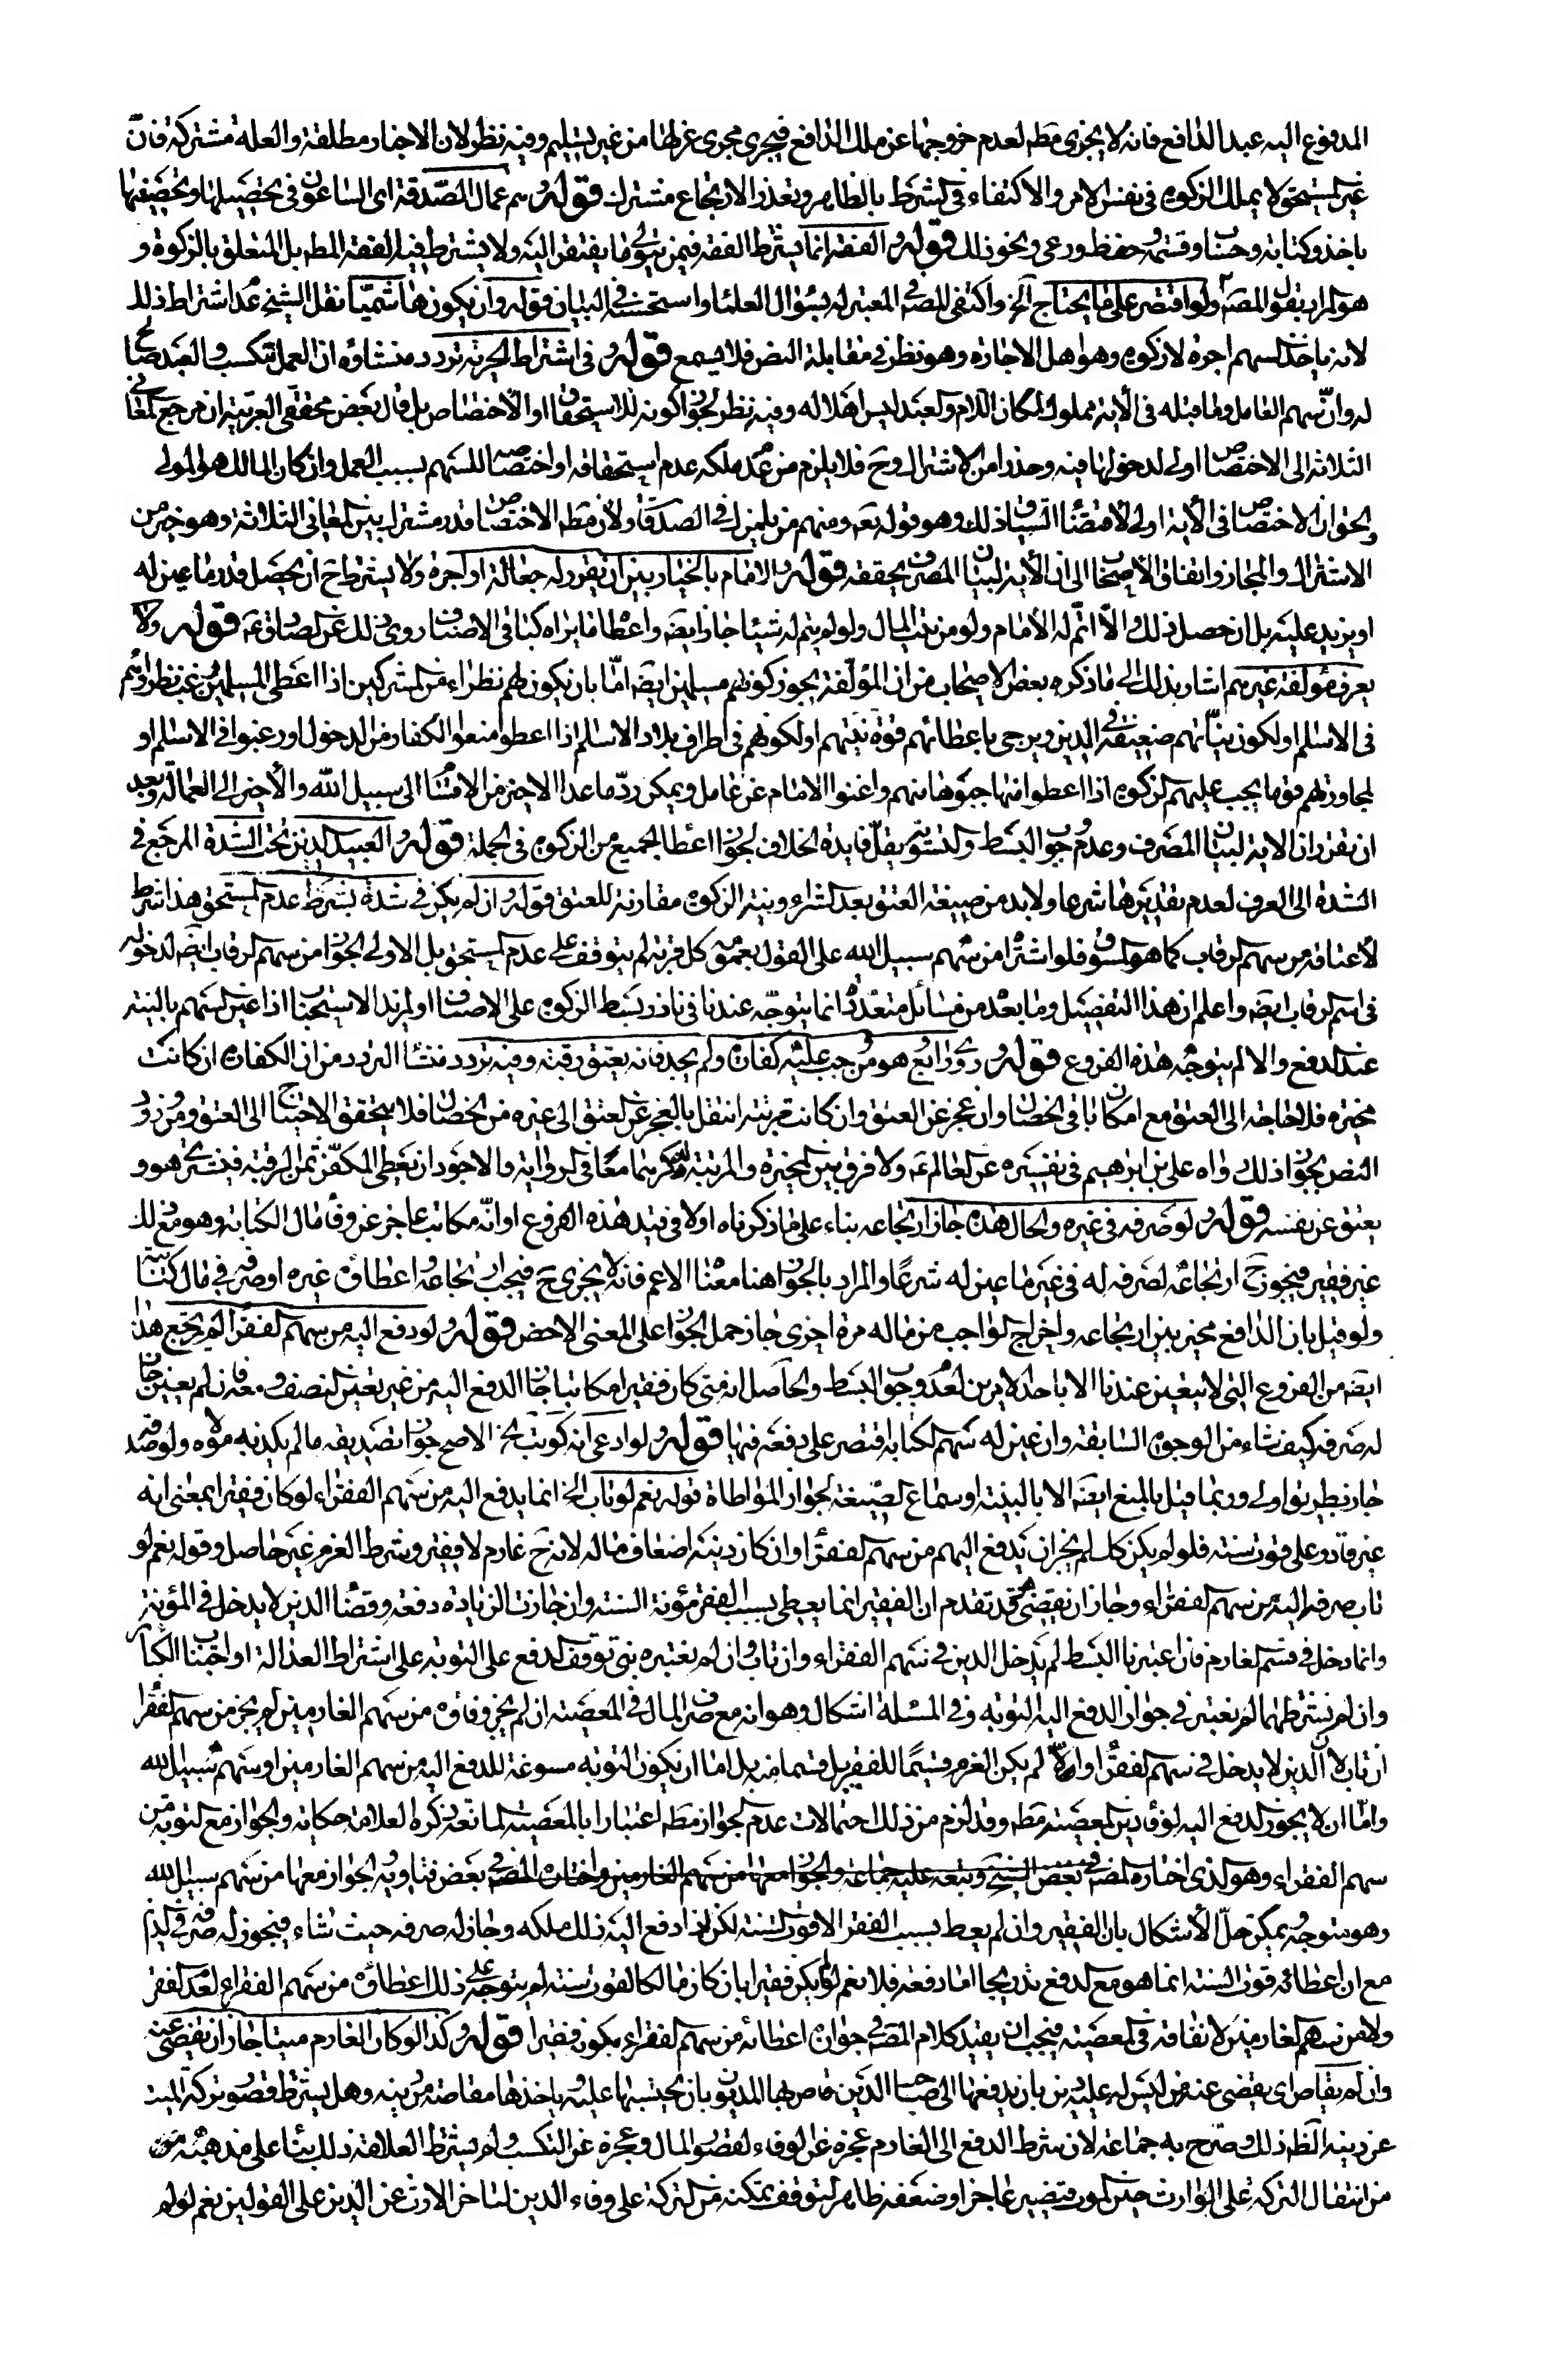 المدفوع اليه عبد الدافع فانه لا يجزى مطه لعدم خروجها عن ملك الدافع فيجرى مجرى عزلها من غير تسليم وفيه نظر لان الاخبار مطلقة والعلة مشتركة فانّ
غير المستحق لا يملك الزكوة في نفس الامر والاكتفاء في الشرط بالظاهر وتعذر الارتجاع مشترك قوله هم عمال الصّدقة اى الساعون في تحصيلها وتحصينها
باخذ وكتابة وحساب وقسمة وحفظ ورعى ونحو ذلك قوله والفقه انما يشترط الفقه فيمن يتولى ما يفتقر اليه ولا يشترط فيه الفقه المط بل المتعلق بالزكوة و
هو المراد بقول المصّ ولو اقتصر على ما يحتاج الخ واكتفى المصّ في المعتبر له بسؤال العلماء واستحسنه في البيان قوله وان يكون هاشميّا نقل الشيخ عدم اشتراط ذلك
لانه ياخذ السهم اجرة لا زكوة وهو اهل الاجارة وهو نظر في مقابلة النص فلا يسمع قوله وفي اشتراط الحرية تردد منشاؤه ان العمل تكسب والعبد صالح
له وانّ سهم العامل وما قبله في الاية مملوك لمكان اللام والعبد ليس اهلا له وفيه نظر لجواز كونه للاستحقاق او الاختصاص بل قال بعض محققى العربية ان مرجع المعانى
الثلاثة الى الاختصاص اولى لدخولها فيه وحذرا من الاشتراك وح فلا يلزم من عدم ملكه عدم استحقاقه او اختصاصه للسهم بسبب العمل وان كان المالك هو المولى
والحق ان الاختصاص في الاية اولى لاقتضاء السياق ذلك وهو قوله تعه ومنهم من يلمزك في الصدقات ولان مطه الاختصاص قدر مشترك بين المعانى الثلاثة وهو خير من
الاشتراك والمجاز واتفاق الاصحاب الى ان الاية لبيان المصرف يحققه قوله والامام بالخيار بين ان يقرر له جعالة او اجرة ولا يشترط ح ان يحصل قدر ما عين له
او يزيد عليه بل ان حصل ذلك والاّ اتمّ له الامام ولو من بيت المال ولو لم يتم له شيئا جاز ايضه واعطاه ما يراه كباقى الاصناف روى ذلك عن الصادق عه قوله ولا
يعرف مؤلفة غيرهم اشار بذلك الى ما ذكره بعض الاصحاب من ان المؤلّفة يجوز كونهم مسلمين ايضه امّا بان يكون لهم نظراء من المشركين اذا اعطى المسلمون رغب نظراؤهم
في الاسلم او لكون نيّاتهم ضعيفة في الدين ويرجى باعطائهم قوة نيّتهم او لكونهم في اطراف بلاد الاسلم اذا اعطوا منعوا الكفار من الدخول او رغبوا في الاسلم او
لمجاورتهم قوما يجب عليهم الزكوة اذا اعطوا منها جبوها منهم واغنوا الامام عن عامل ويمكن ردّ ما عدا الاخير من الاقسام الى سبيل الله والاخير الى العمالة وبعد
ان تقرر ان الاية لبيان المصرف وعدم وجوب البسط والتسوية يقلّ فايدة الخلاف لجواز اعطا الجميع من الزكوة في الجملة قوله والعبيد الذين تحت الشدة المرجع في
الشدة الى العرف لعدم تقديرها شرعا ولا بد من صيغة العتق بعد الشراء ونية الزكوة مقارنة للعتق قوله وان لم يكن في شدة بشرط عدم المستحق هذا شرط
لاعتاقه من سهم الرقاب كما هو المسوق فلو اشتراه من سهم سبيل الله على القول بعمومه كل قربة لم يتوقف على عدم المستحق بل الاولى الجواز من سهم الرقاب ايضه لدخوله
في اسم الرقاب ايضه واعلم ان هذا التفصيل وما بعده من مسائل متعدّدة انما يتوجّه عندنا في نادر بسط الزكوة على الاصناف او لمريد الاستحباب اذا عين السهم بالنية
عند الدفع والا لم يتوجّه هذه الفروع قوله وروى رابع هو من وجب عليه كفارة ولم يجد فانه يعتق رقبة وفيه تردد منشأ التردد من ان الكفارة ان كانت
مخيرة فلا حاجة الى العتق مع امكان باقى الخصال وان عجز عن العتق وان كانت مرتبة انتقل بالعجز عن العتق الى غيره من الخصال فلا يتحقق الاحتياج الى العتق ومن ورود
النص بجواز ذلك رواه على بن ابرهيم في تفسيره عن العالم عه ولا فرق بين المخيرة والمرتبة لذكرهما معًا في الرواية والاجود ان يعطى المكفّر ثمن الرقبة فيشترى هو و
يعتق عن نفسه قوله ولو صرفه في غيره والحال هذه جاز ارتجاعه بناء على ما ذكرناه اولا في قيد هذه الفروع او انّه مكاتب عاجز عن وفاء مال الكتابة وهو مع ذلك
غير فقير فيجوز ح ارتجاعه لصرفه له في غير ما عين له شرعًا والمراد بالجواز هنا معناه الاعم فانه لا يجزى ح فيجب ارتجاعه واعطاؤه غيره او صرفه في مال كتابته
ولو قيل بان الدافع مخير بين ارتجاعه واخراج الواجب من ماله مرة اخرى جاز حمل الجواز على المعنى الاخص قوله ولو دفع اليه من سهم الفقراء لم يرتجع هذا
ايضه من الفروع التى لا يتعين عندنا الا باحد الامرين لعدم وجوب البسط والحاصل انه متى كان فقيرا مكاتبا جاز الدفع اليه من غير تعيين الصنف ومعه فان لم يعين جاز
له صرفه كيف شاء من الوجوه السابقة وان عين له سهم الكتابة اقتصر على دفعه فيها قوله ولو ادعى انه كوتب الخ الاصح جواز تصديقه ما لم يكذبه مولاه ولو صدقه
جاز بطريق اولى وربما قيل بالمنع ايضه الا بالبينة او سماع الصيغة لجواز المواطاة قوله نعم لو تاب الخ انما يدفع اليه من سهم الفقراء لو كان فقيرا بمعنى انه
غير قادر على قوت سنته فلو لم يكن كك لم يجز ان يدفع اليهم من سهم الفقراء وان كان دينه اضعاف ماله لانه ح غارم لا فقير وشرط الغرم غير حاصل وقوله نعم لو
تاب صرف اليه من سهم الفقراء وجاز ان يقضى هو قد تقدم ان الفقير انما يعطى بسبب الفقر مؤنة السنة وان جازت الزيادة دفعة وقضاء الدين لا يدخل في المؤنة
وانما دخل في قسم الغارم فان اعتبرنا البسط لم يدخل الدين في سهم الفقراء وان تاب وان لم نعتبره بنى توقف الدفع على التوبة على اشتراط العدالة او اجتناب الكبائر
وان لم نشترطهما لم نعتبر في جواز الدفع اليه التوبة وفي المسئلة اشكال وهو انه مع صرف المال في المعصية ان لم يجز وفاؤه من سهم الغارمين لم يجز من سهم الفقراء
ان تاب لان الدين لا يدخل في سهم الفقراء والا لم يكن الغرم قسيمًا للفقير بل قسما منه بل اما ان يكون التوبة مسوغة للدفع اليه من سهم الغارمين او سهم سبيل الله
وامّا ان لا يجوز الدفع اليه لوفاء دين المعصية مطه وقد لزم من ذلك احتمالات عدم الجواز مطه اعتبارا بالمعصية المانعة ذكره العلامة حكاية والجواز مع التوبة من
سهم الفقراء وهو الذى اختاره المصّ في بعض الشيخ وتبعه عليه جماعة والجواز معها من سهم الغارمين واختاره المصّ في بعض فتاويه والجواز معها من سهم سبيل الله
وهو متوجه ويمكن حلّ الاشكال بان الفقير وان لم يعط بسبب الفقر الا قوت السنة لكن اذا دفع اليه ذلك ملكه وجاز له صرفه حيث شاء فيجوز له صرفه في الدين
مع ان اعطائه قوت السنة انما هو مع الدفع تدريجا اما دفعة فلا نعم لو لم يكن فقيرا بان كان مالكا لقوت سنته لم يتوجه على ذلك اعطاؤه من سهم الفقراء لعدم الفقر
ولا من سهم الغارمين لانفاقه في المعصية فيجب ان يقيد كلام المصّ في جواز اعطائه من سهم الفقراء بكونه فقيرا قوله وكذا لو كان الغارم ميتا جاز ان يقضى عنه
وان لم يقاص اى يقضى عنه من ليس له عليه دين بان يدفعها الى صاحب الدّين وقاص بها المديون بان يحتسبها عليه وياخذها مقاصة من دينه وهل يشترط قصور تركة الميت
عن دينه الظه ذلك وصرّح به جماعة لان شرط الدفع الى الغارم عجزه عن الوفاء لقصور المال وعجزه عن التكسب ولم يشترط العلامة ذلك بناء على مذهبه من
من انتقال التركة على الوارث حين الموت فيصير عاجزا وضعفه ظاهر لتوقف تمكنه من التركة على وفاء الدين لتاخر الارث عن الدين على القولين نعم لو لم